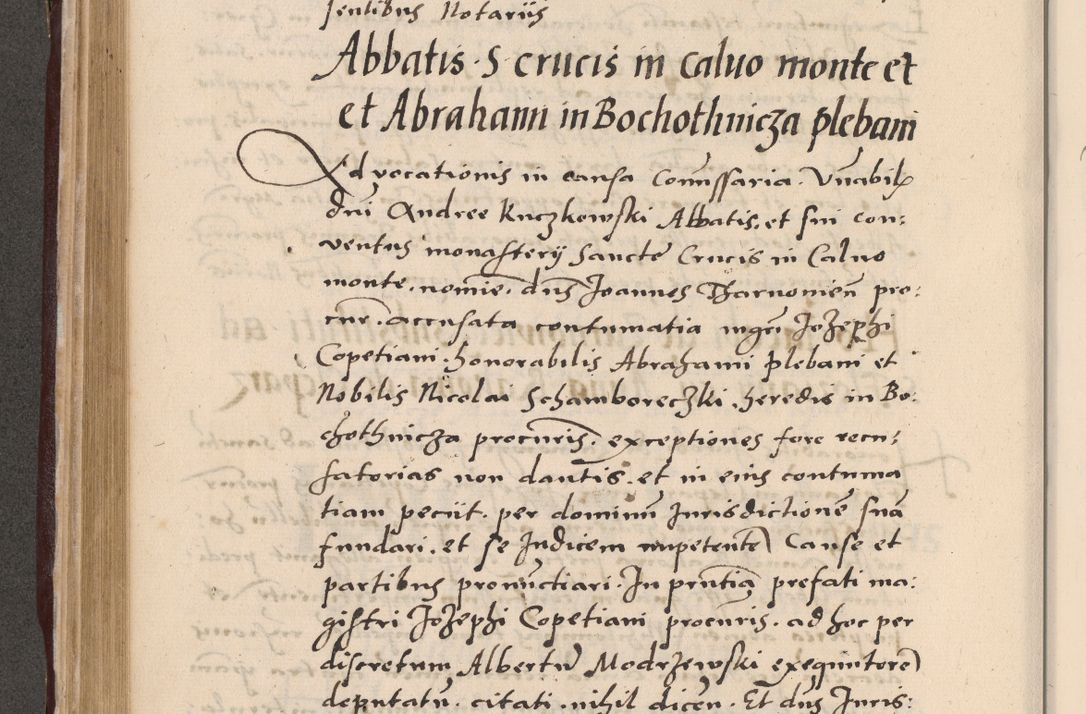 sentibus Notariis
Abbatis · S · crucis in caluo monte et
et Abrahami in Bochothnicza plebani
Ad vocationis in causa Comissaria · Vnabil
dni Andree Kuczkowski Abbatis · et sui con:
ventus monastery Sancte Crucis in Caluo
monte · nomie · dns Joannes Tharnonien pro:
cur · accusata contumatia mgri Jozephi
Copetiani · honorabilis Abrahami plebani et
Nobilis Nicolai Schamboreczki · heredis in Bo:
chothnicza procuris · exceptiones fore recu:
satorias non dantis · et in eius contuma
tiam peciit · per dominum Jurisdictione sua
fundari · et se Judicem competente Cause et
partibus pronuctiari · In pntia prefati ma:
gistri Jozephi Copetiani procuris · ad hoc per
discretum Albertu Modrzewski exequutore
deputatu · citati · nihil dicen · Et dns Juris: